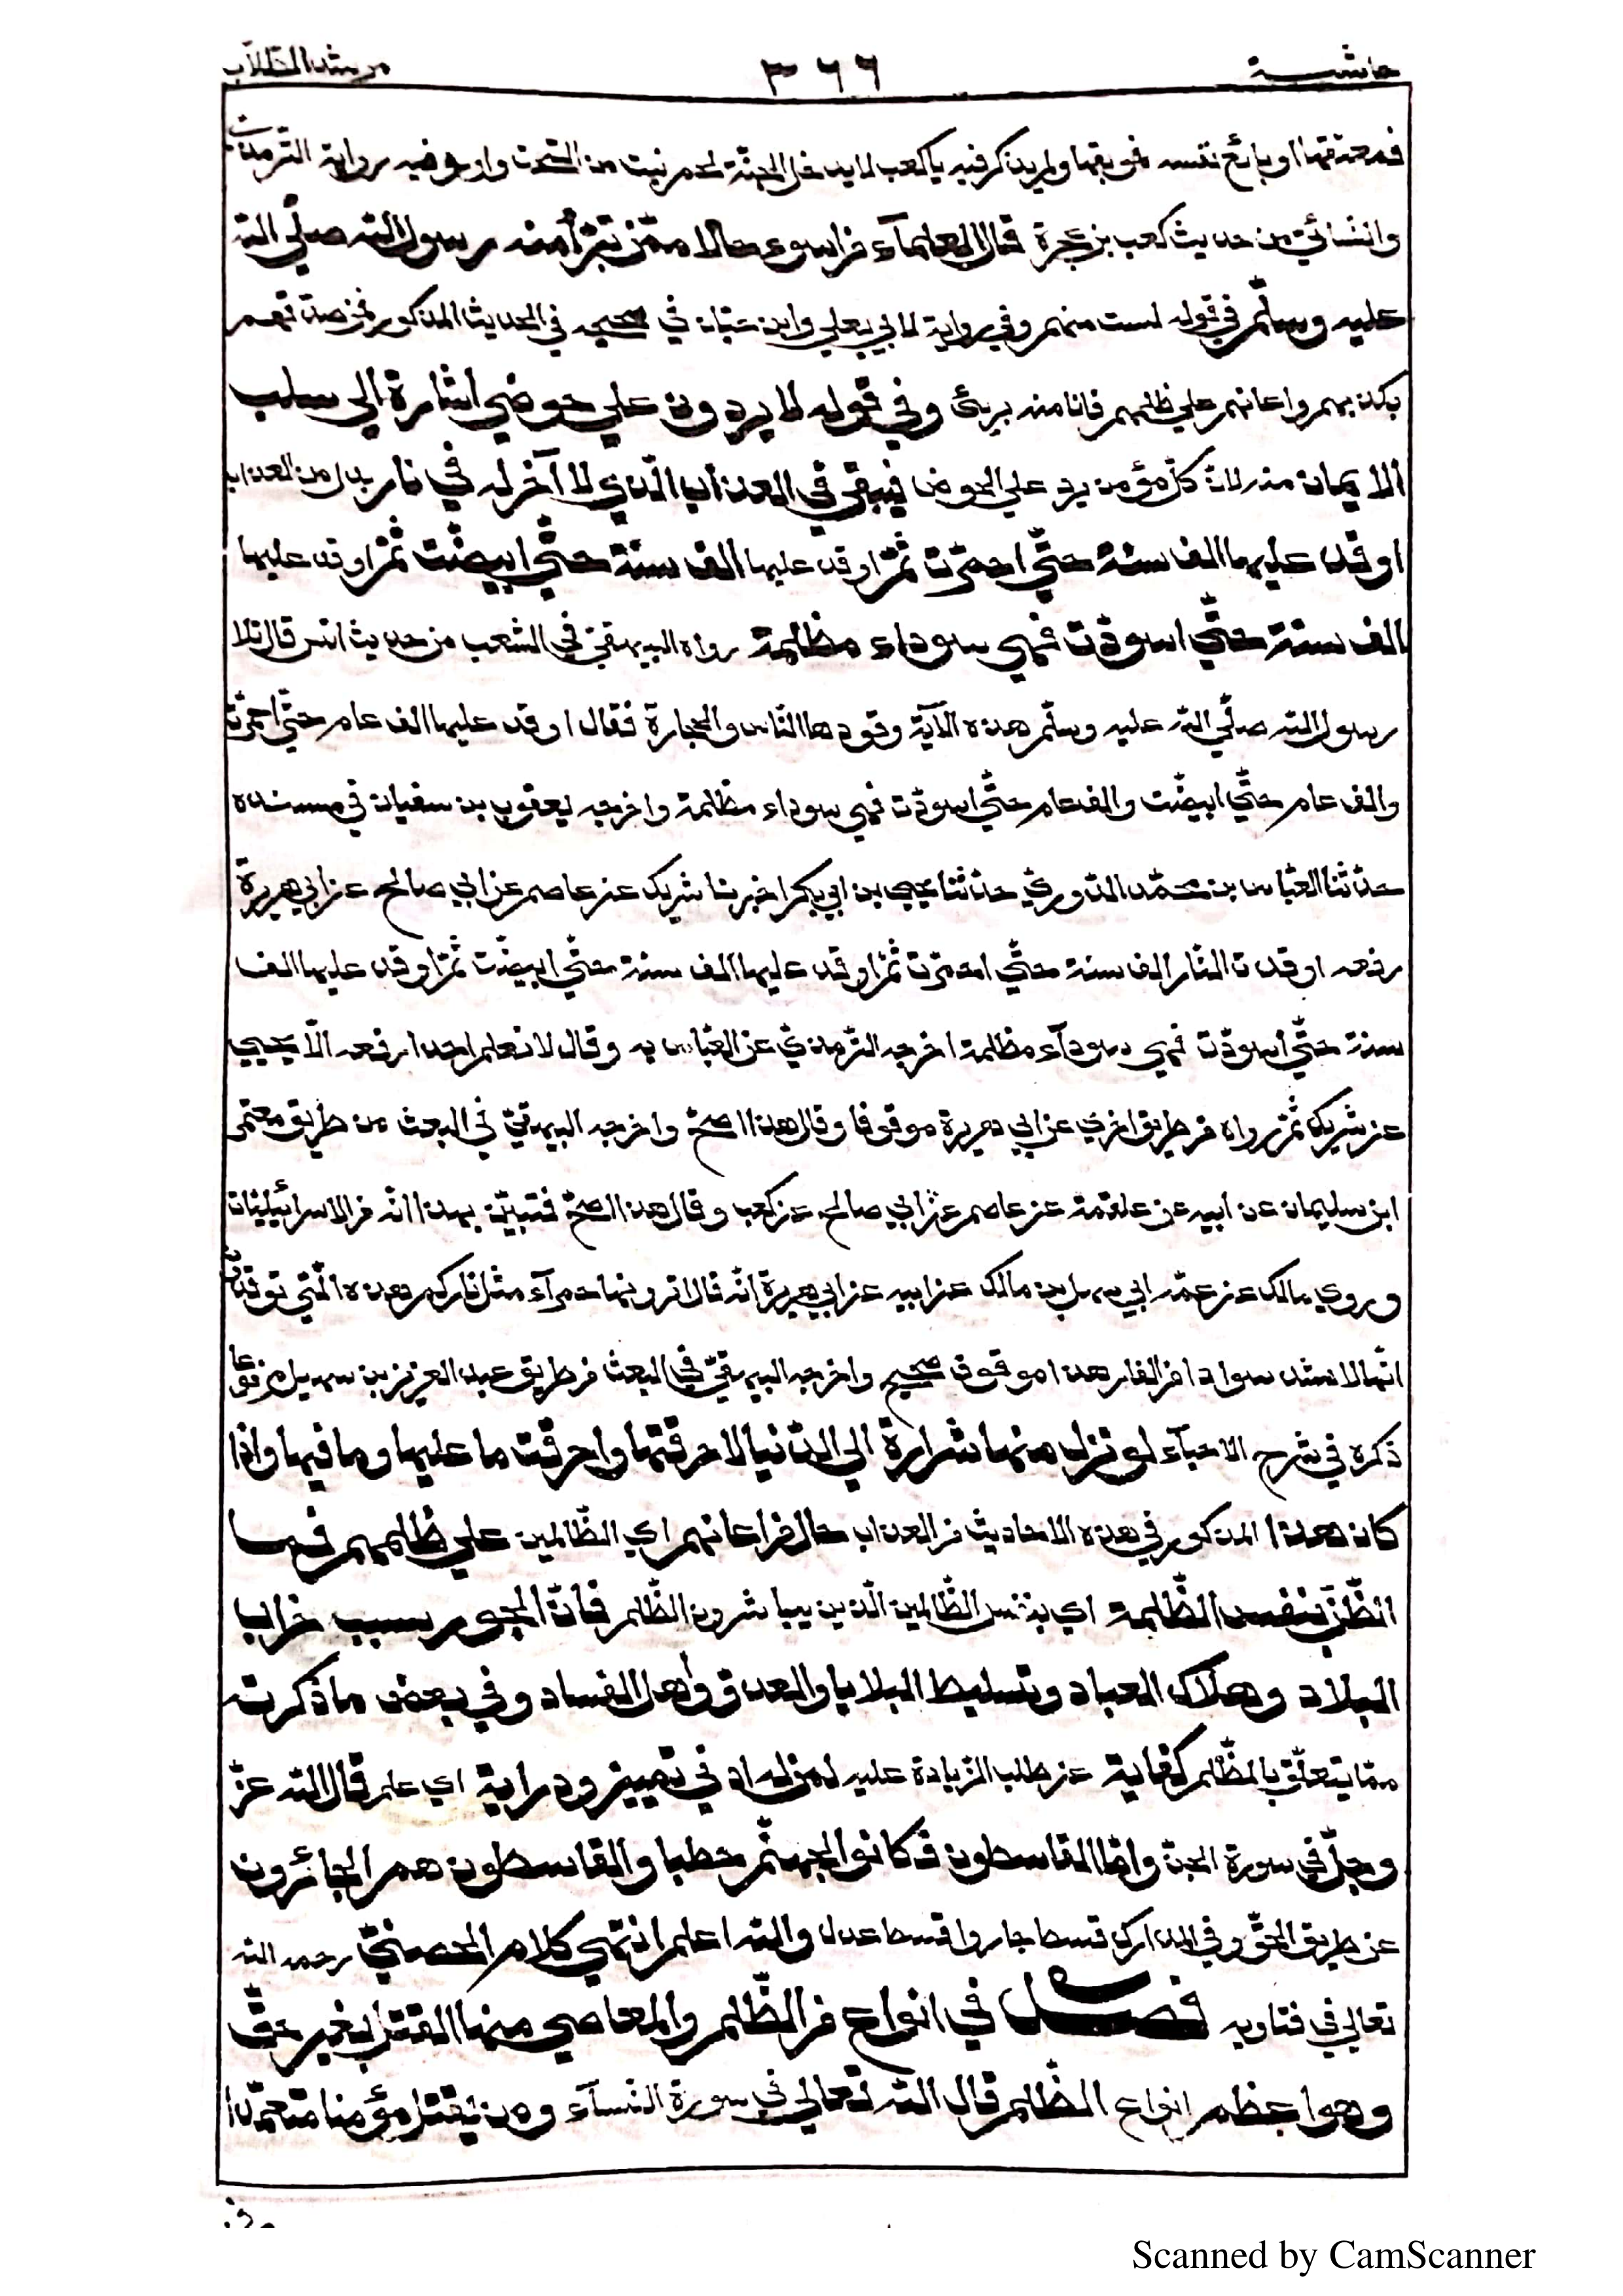 حاشية ٣٦٦ مرشد الطلاب
فمعتقها او بائع نفسه فموبقها ولم يذكر فيه يا كعب لا يدخل الجنة لحم نبت من السحت وارو فيه رواية الترمذي
والنسائي من حديث كعب بن عجرة قال العلماء فمن اسوء حالا ممن تبرأ منه رسول الله صلّي الله
عليه وسلّم في قوله لست منهم وفي رواية لابي يعلي وابن حبّان في صحيحه في الحديث المذكور فمن صدقهم
بكذبهم واعانهم علي ظلمهم فانا منه بريئ وفي قوله لا يردون علي حوضي اشارة الي سلب
الايمان منه لانّ كلّ مؤمن يرد علي الحوض فيبقي في العذاب الّذي لا آخر له في نار بدل من العذاب
اوقد عليها الف سنة حتّي احمرّت ثمّ اوقد عليها الف سنة حتّي ابيضّت ثمّ اوقد عليها
الف سنة حتّي اسودّت فهي سوداء مظلمة رواه البيهقيّ في الشعب من حديث انس قال تلا
رسول الله صلّي الله عليه وسلّم هذه الآية وقودها النّاس والحجارة فقال اوقد عليها الف عام حتّي احمرّت
والف عام حتّي ابيضّت والف عام حتّي اسودّت فهي سوداء مظلمة واخرجه يعقوب بن سفيان في مسنده
حدّثنا العبّاس بن محمّد الدّوريّ حدّثنا يحيي بن ابي بكر اخبرنا شريك عن عاصم عن ابي صالح عن ابي هريرة
رفعه اوقدت النّار الف سنة حتّي احمرّت ثمّ اوقد عليها الف سنة حتّي ابيضّت ثمّ اوقد عليها الف
سنة حتّي اسودّت فهي سودآء مظلمة اخرجه التّرمذيّ عن العبّاس به وقال لا نعلم احدا رفعه الّا يحيي
عن شريك ثمّ رواه من طريق اخري عن ابي هريرة موقوفا وقال هذا اصحّ واخرجه البيهقيّ في البعث من طريق معتمر
ابن سليمان عن ابيه عن علقمة عن عاصم عن ابي صالح عن كعب وقال هذا اصحّ فتبيّن بهذا انّه من الاسرائيليّات
وروي مالك عن عمّه ابي سهل بن مالك عن ابيه عن ابي هريرة انّه قال اترونها حمرآء مثل ناركم هذه الّتي توقدون
انّها لاشد سوادا من القار هذا موقوف صحيح واخرجه البيهقيّ في البعث من طريق عبد العزيز بن سهيل مرفوعا
ذكره في شرح الاحيآء لو نزل منها شرارة الي الدّنيا لاحرقتها واحرقت ما عليها وما فيها واذا
كان هذا المذكور في هذه الاحاديث من العذاب حال من اعانهم اي الظّالمين علي ظلمهم فما
الظّنّ بنفس الظّلمة اي بنفس الظّالمين الّذين يباشرون الظّلم فانّ الجور بسبب خراب
البلاد وهلاك العباد وتسليط البلايا والعدوّ واهل الفساد وفي بعض ما ذكرت
ممّا يتعلّق بالظّلم كفاية عن طلب الزّيادة عليه لمن له ادني تمييز ودراية اي علم قال الله عزّ
وجلّ في سورة الجنّ وامّا القاسطون فكانوا لجهنّم حطبا والقاسطون هم الجائرون
عن طريق الحقّ وفي المدارك قسط جار واقسط عدل والله اعلم انتهي كلام الحصنيّ رحمه الله
تعالي في فتاويه فصل في انواع من الظّلم والمعاصي منها القتل بغير حقّ
وهو اعظم انواع الظّلم قال الله تعالي في سورة النّسآء ومن يقتل مؤمنا متعمّدا
Scanned by CamScanner